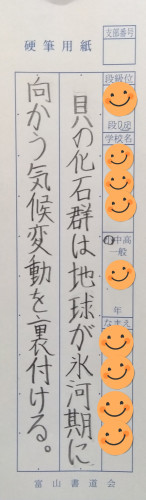 支部番号
硬筆用紙
段級位
段0房
学校名
小中高
一般
年
なまえ
貝の化石群は地球が氷河期に
向かう気候変動を裏付ける。
富山書道会